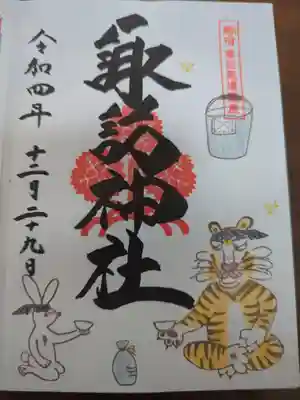 諏訪神社
令和四年
十二月二十九日